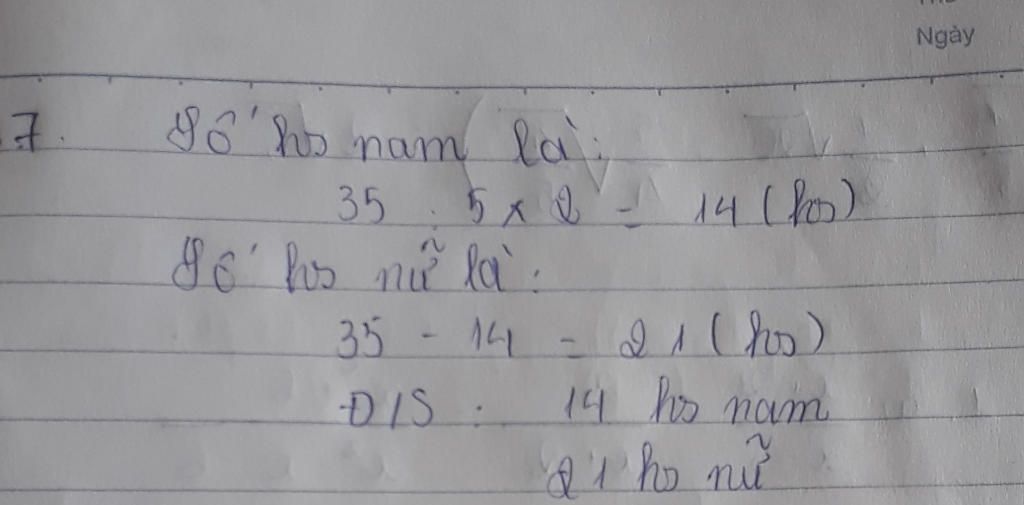 Ngày
7. Số hs nam là:
35 : 5 x 2 = 14 (hs)
Số hs nữ là:
35 - 14 = 21 (hs)
Đ/S : 14 hs nam
21 hs nữ